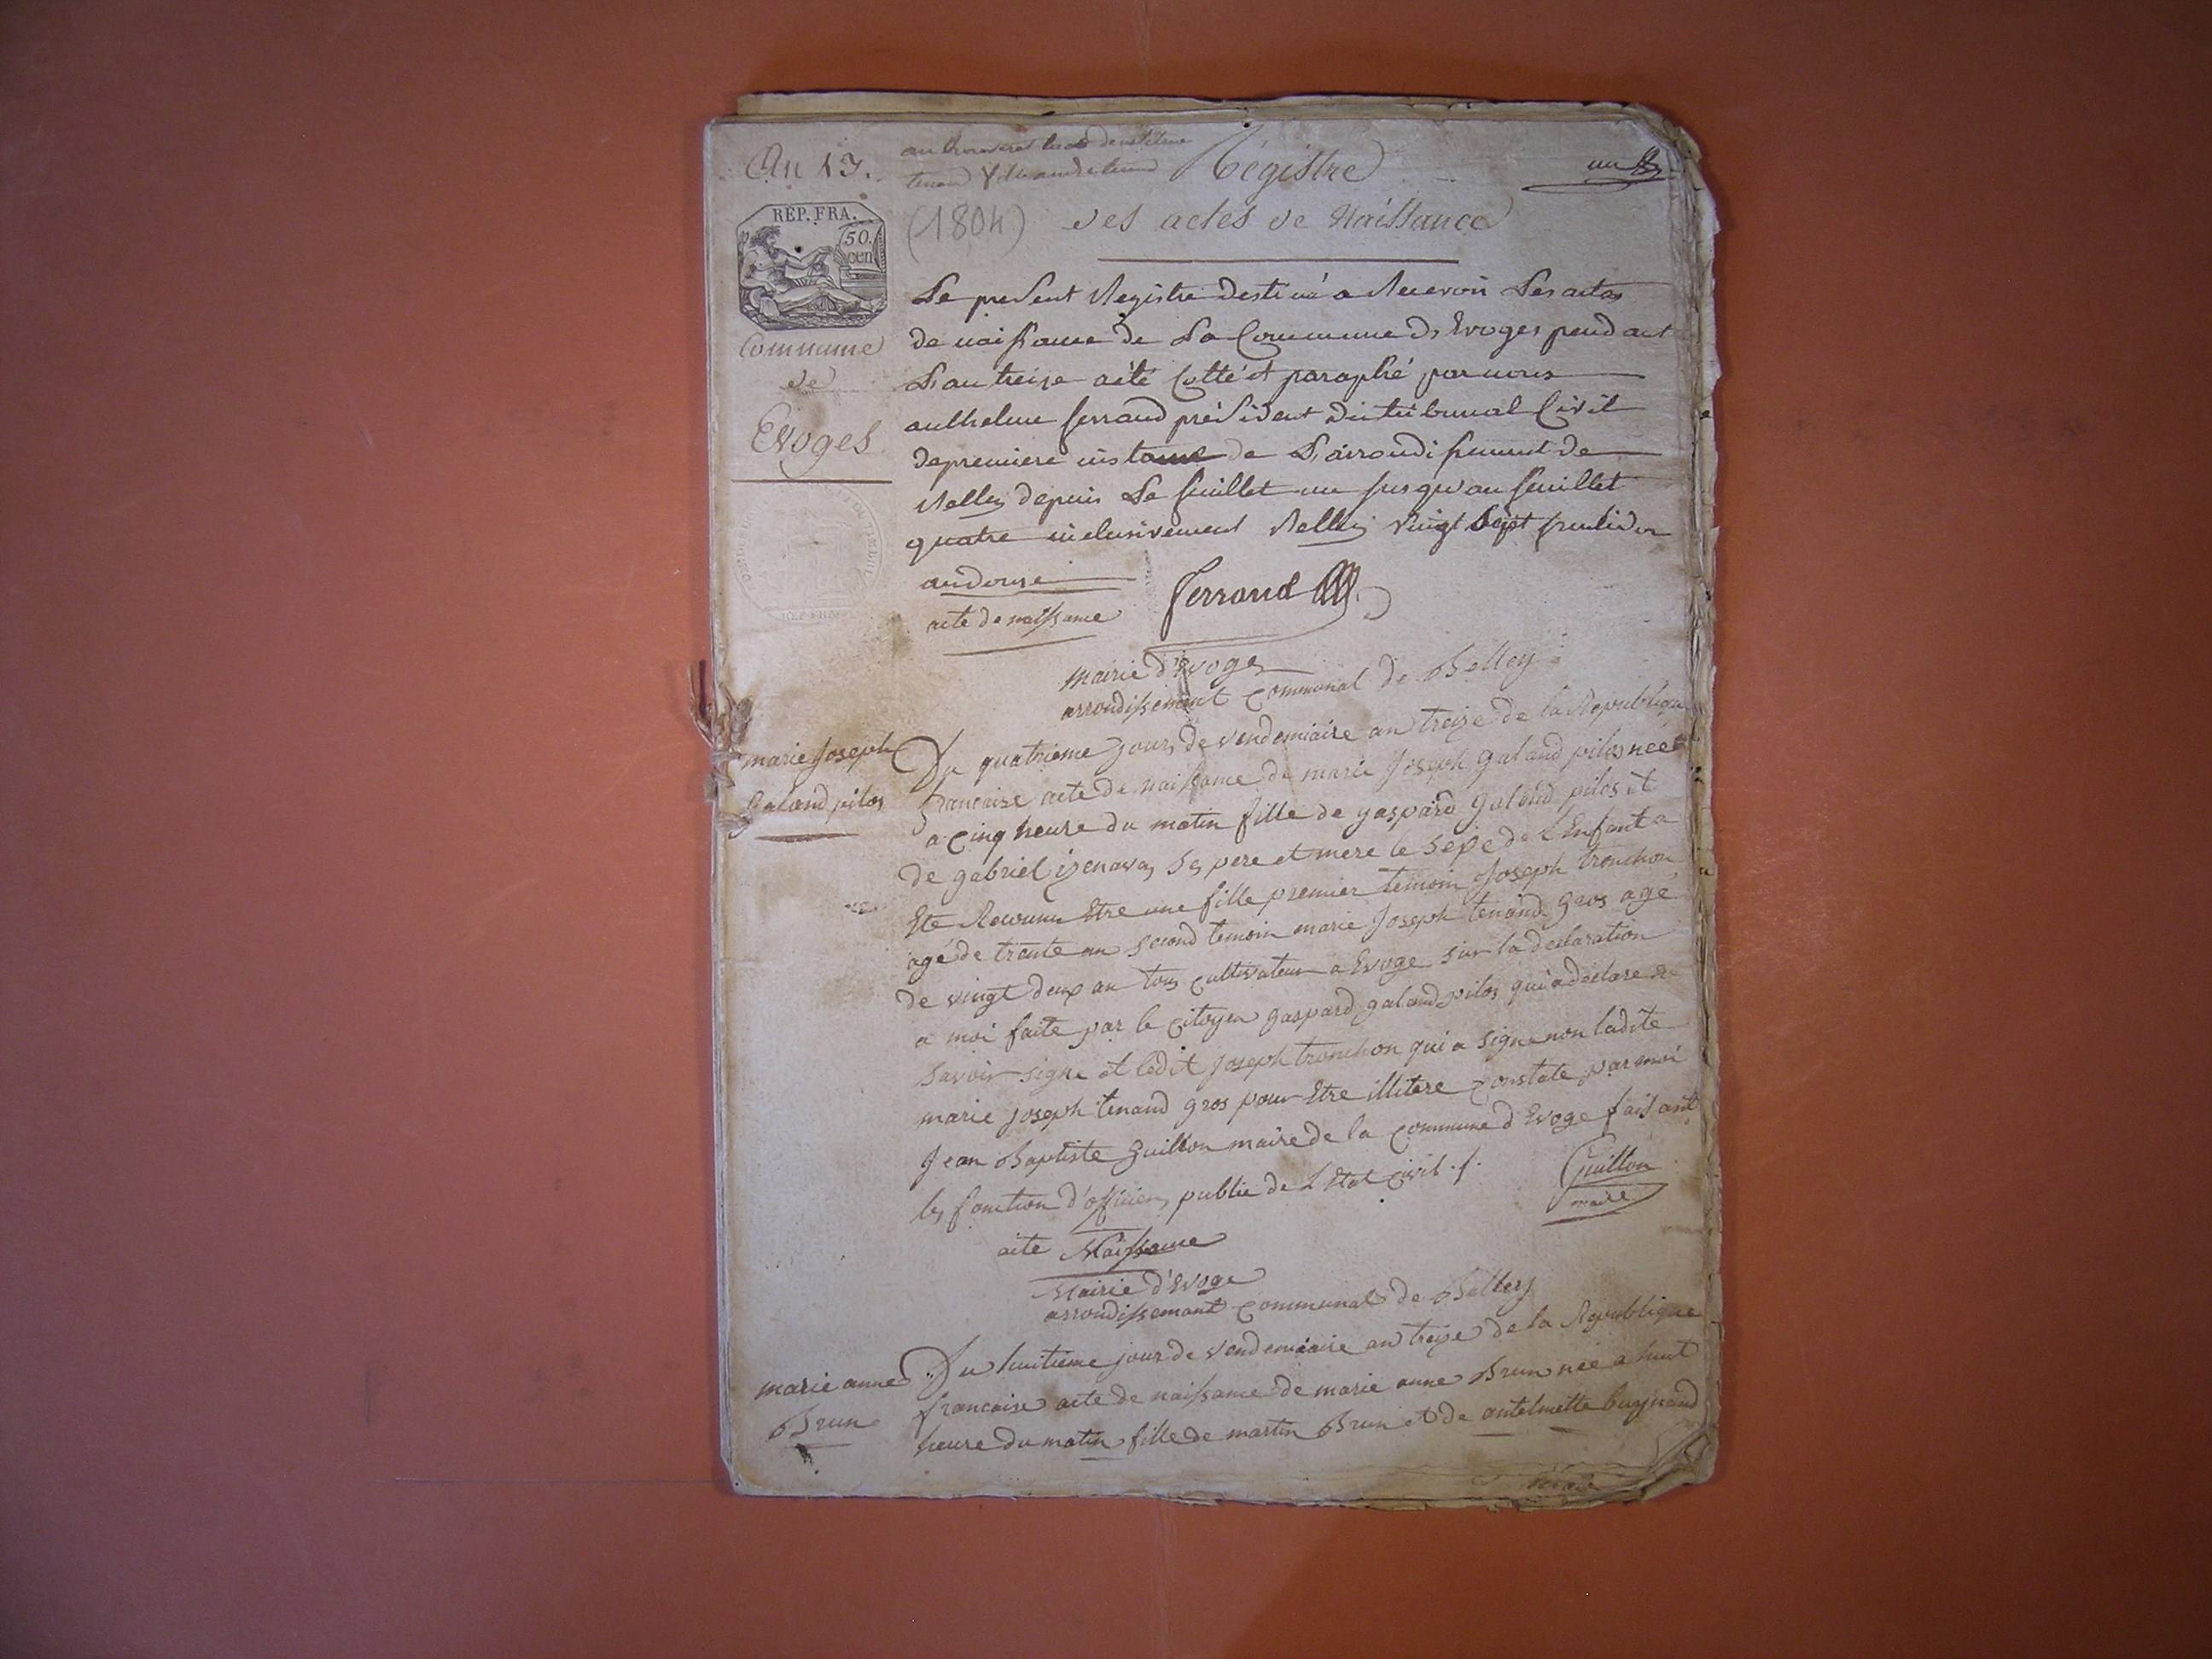 An 13.
Régistre
un
REP. FRA.
50.
cen
(1804) des actes de Naissance
Commune
de
Evoges
Le present Registre destiné a Recevoir Les actes
de naissance de La Commune d'Evoges pendant
L'an treize a été Cotté et paraphé par nous
anthelme ferrand président du tribunal Civil
de premiere instance de L'arrondissement de
Belley depuis Le feuillet un jusqu'au feuillet
quatre inclusivement Belley vingt Sept fructidor
an douze
Ferrand
REP. FRA.
acte de naissance
mairie d'Evoges
arrondissement communal de Belley
marie Joseph
Galand pilos
Du quatrieme jour de vendemiaire an treize de la Republique
francaise acte de naissance de marie Joseph galand pilos née
a cinq heure du matin fille de gaspard galand pilos et
de gabriel ses pere et mere le sexe de L'Enfant a
Ete Reconnu Etre une fille premier temoin Joseph tronchon
agé de trente an second temoin marie Joseph tenand gros agé
de vingt deux an tous cultivateur a Evoge sur la declaration
a moi faite par le citoyen gaspard galand pilos qui a declare ne
savoir signe et ledit Joseph tronchon qui a signe non ladite
marie joseph tenand gros pour Etre illitere constate par moi
Jean Baptiste Guillon maire de la commune d'Evoge faisant
les fonction d'officier public de L'Etat civil
Guillon
maire
acte Naissance
Mairie d'Evoge
arrondissemant communal de Belley
marie anne
Brun
Du huitieme jour de vendemiaire an treize de la Republique
francaise acte de naissance de marie anne Brun née a huit
heure du matin fille de martin Brun et de antelmette buynand